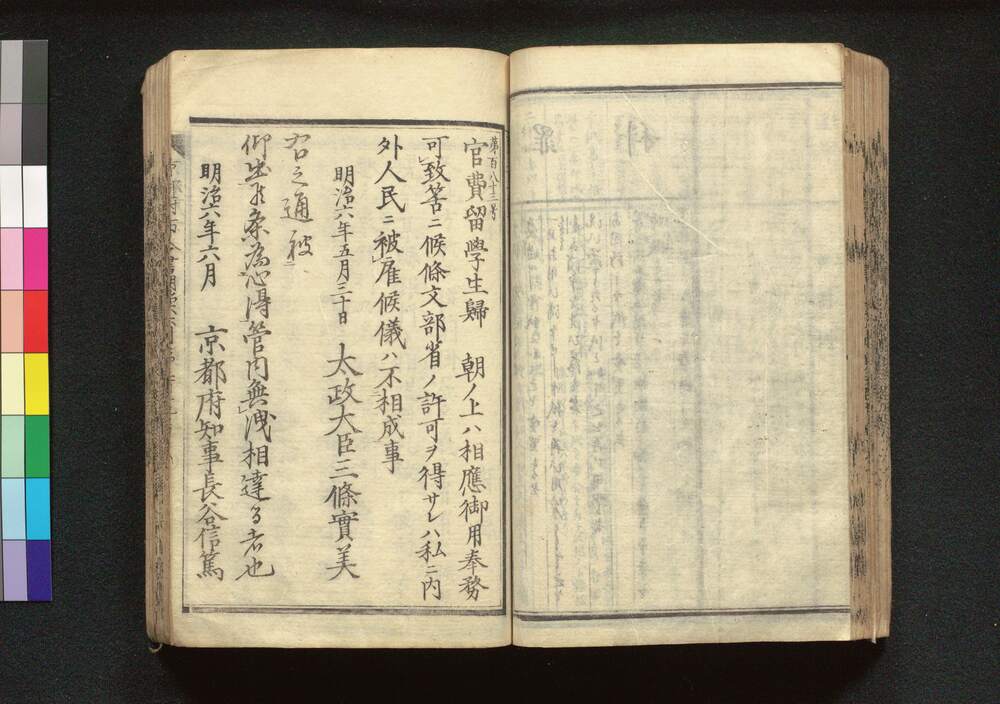 第百八十三号
官費留學生歸　朝ノ上ハ相應御用奉務
可致筈ニ候條文部省ノ許可ヲ得サレハ私ニ内
外人民ニ被雇候儀ハ不相成事
明治六年五月三十日　太政大臣三條實美
右之通被
仰出候条為心得管内無洩相達る者也
明治六年六月　京都府知事長谷信篤